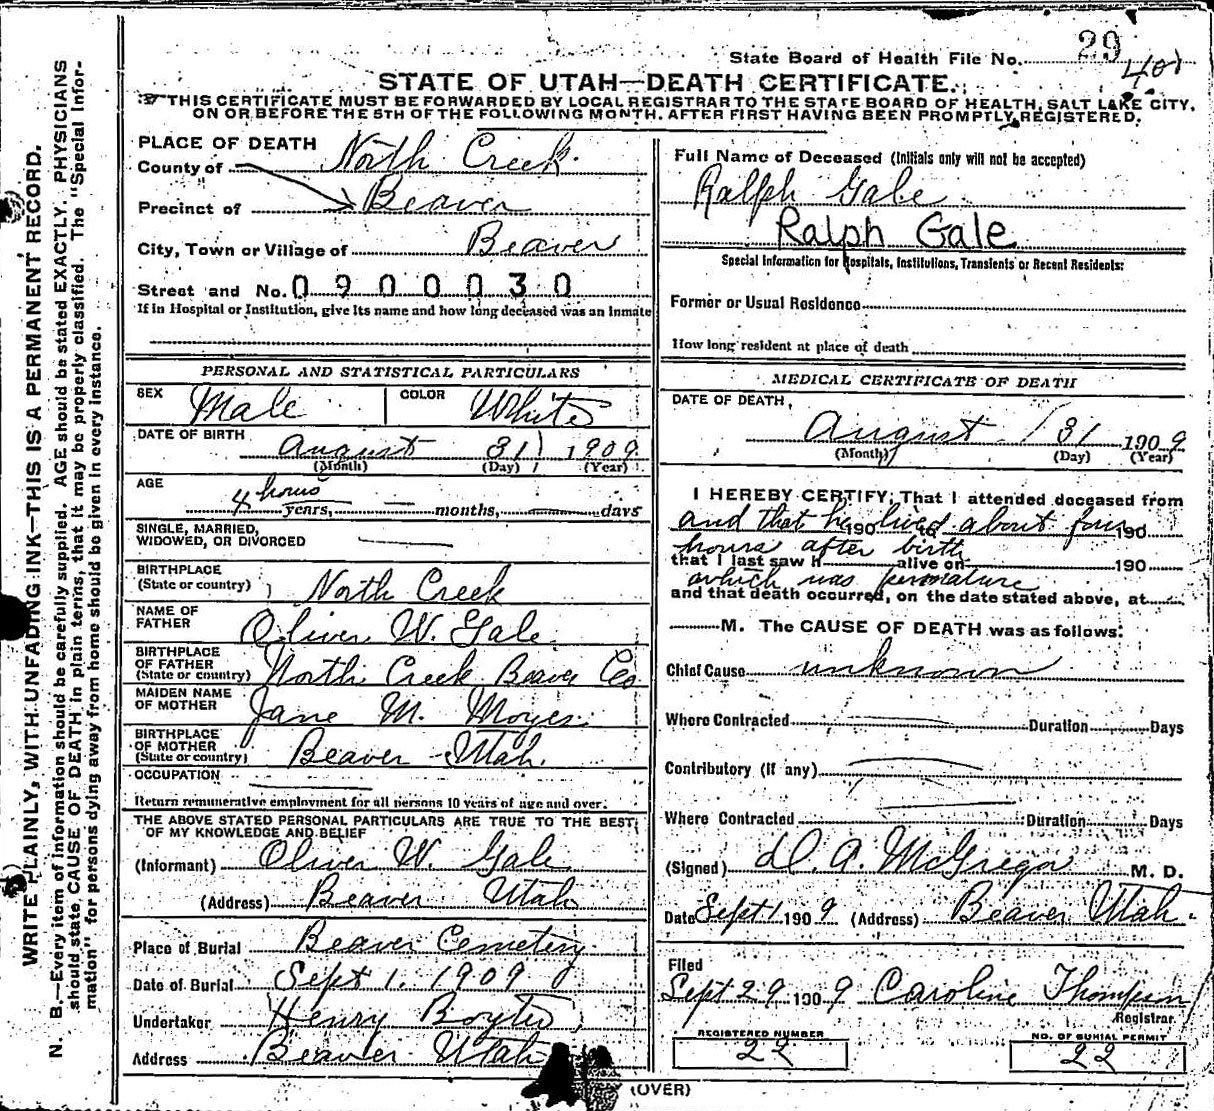 State Board of Health File No. 29
401
STATE OF UTAH—DEATH CERTIFICATE.
THIS CERTIFICATE MUST BE FORWARDED BY LOCAL REGISTRAR TO THE STATE BOARD OF HEALTH, SALT LAKE CITY,
ON OR BEFORE THE 5TH OF THE FOLLOWING MONTH. AFTER FIRST HAVING BEEN PROMPTLY REGISTERED.
WRITE PLAINLY, WITH UNFADING INK—THIS IS A PERMANENT RECORD.
N. B.—Every item of information should be carefully supplied. AGE should be stated EXACTLY. PHYSICIANS
should state CAUSE OF DEATH in plain terms, that it may be properly classified. The "Special Infor-
mation" for persons dying away from home should be given in every instance.
PLACE OF DEATH
County of North Creek
Precinct of Beaver
City, Town or Village of Beaver
Street and No. 0900030
If in Hospital or Institution, give its name and how long deceased was an Inmate
PERSONAL AND STATISTICAL PARTICULARS
SEX Male COLOR White
DATE OF BIRTH August 31 1909
(Month) (Day) (Year)
AGE 4 hours years, — months, — days
SINGLE, MARRIED,
WIDOWED, OR DIVORCED
BIRTHPLACE
(State or country) North Creek
NAME OF
FATHER Oliver W. Gale
BIRTHPLACE
OF FATHER
(State or country) North Creek Beaver Co
MAIDEN NAME
OF MOTHER Jane M. Moyes
BIRTHPLACE
OF MOTHER
(State or country) Beaver Utah
OCCUPATION
Return remunerative employment for all persons 10 years of age and over.
THE ABOVE STATED PERSONAL PARTICULARS ARE TRUE TO THE BEST
OF MY KNOWLEDGE AND BELIEF
(Informant) Oliver W. Gale
(Address) Beaver Utah
Place of Burial Beaver Cemetery
Date of Burial Sept 1. 1909
Undertaker Henry Boyter
Address Beaver Utah
Full Name of Deceased (Initials only will not be accepted)
Ralph Gale
Ralph Gale
Special Information for Hospitals, Institutions, Transients or Recent Residents:
Former or Usual Residence
How long resident at place of death
MEDICAL CERTIFICATE OF DEATH
DATE OF DEATH,
August 31 1909
(Month) (Day) (Year)
I HEREBY CERTIFY, That I attended deceased from
and that he 190 lived to about four 190
hours after birth
that I last saw h alive on 190
which was permature
and that death occurred, on the date stated above, at
M. The CAUSE OF DEATH was as follows:
Chief Cause unknown
Where Contracted Duration Days
Contributory (If any)
Where Contracted Duration Days
(Signed) D. A. McGregor M. D.
Date Sept 1 1909 (Address) Beaver Utah.
Filed
Sept 29 1909 Caroline Thompson
Registrar.
REGISTERED NUMBER
22
NO. OF BURIAL PERMIT
22
(OVER)